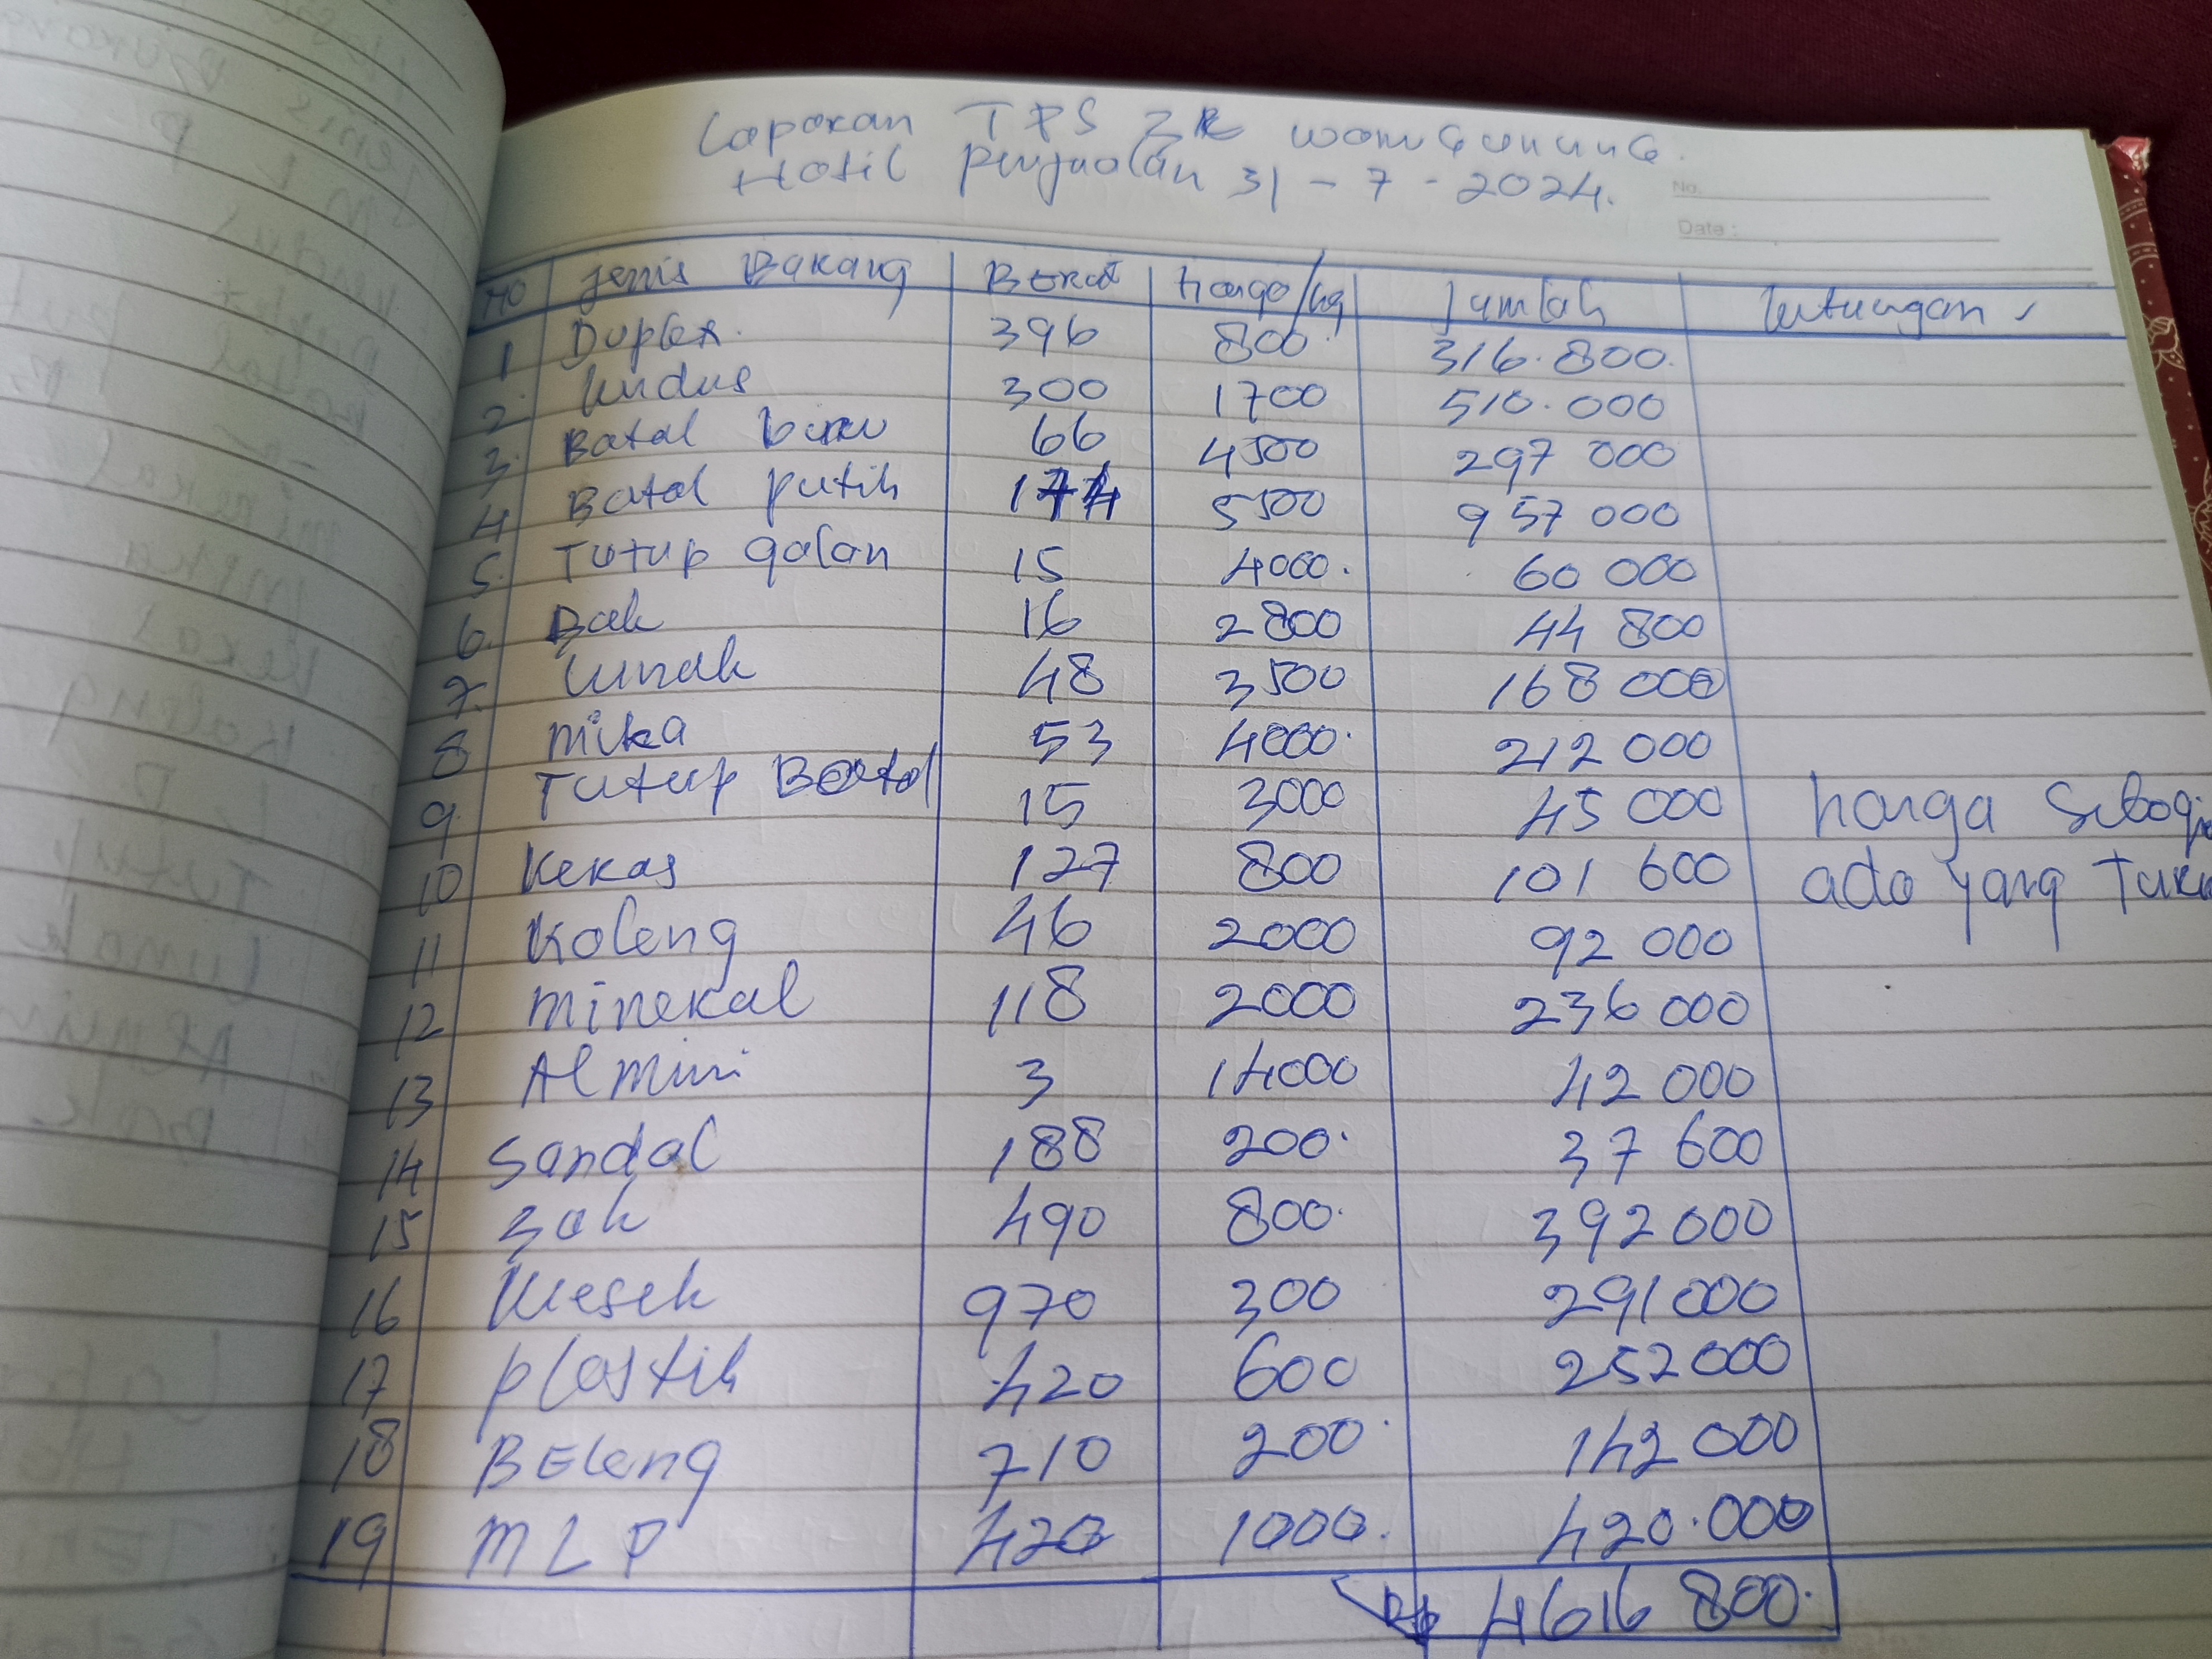 Laporan TPS 3R Warugunung.
Hasil penjualan 31 - 7 - 2024.
No.
Date :
NO Jenis Barang Berat harga/kg Jumlah
1 Duplex. 396 800 316.800.
2. kardus 300 1700 510.000
3. Batol biru 66 4500 297 000
4 Batol putih 174 5500 957 000
5. Tutup galon 15 4000. 60 000
6. Bak 16 2800 44 800
7. lunak 48 3500 168 000
8 mika 53 4000. 212 000
9. Tutup Botol 15 3000 45 000 harga sebagi
10 Keras 127 800 101 600 ada yang Turu
11 Kaleng 46 2000 92 000
12 mineral 118 2000 236 000
13 Almini 3 14000 42 000
14 Sandal 188 200. 37 600
15 Zak 490 800. 392 000
16 Kresek 970 300 291 000
17 plastik 420 600 252 000
18 BEleng 710 200. 142 000
19 MLP 420 1000. 420.000
Rp 4616 800.